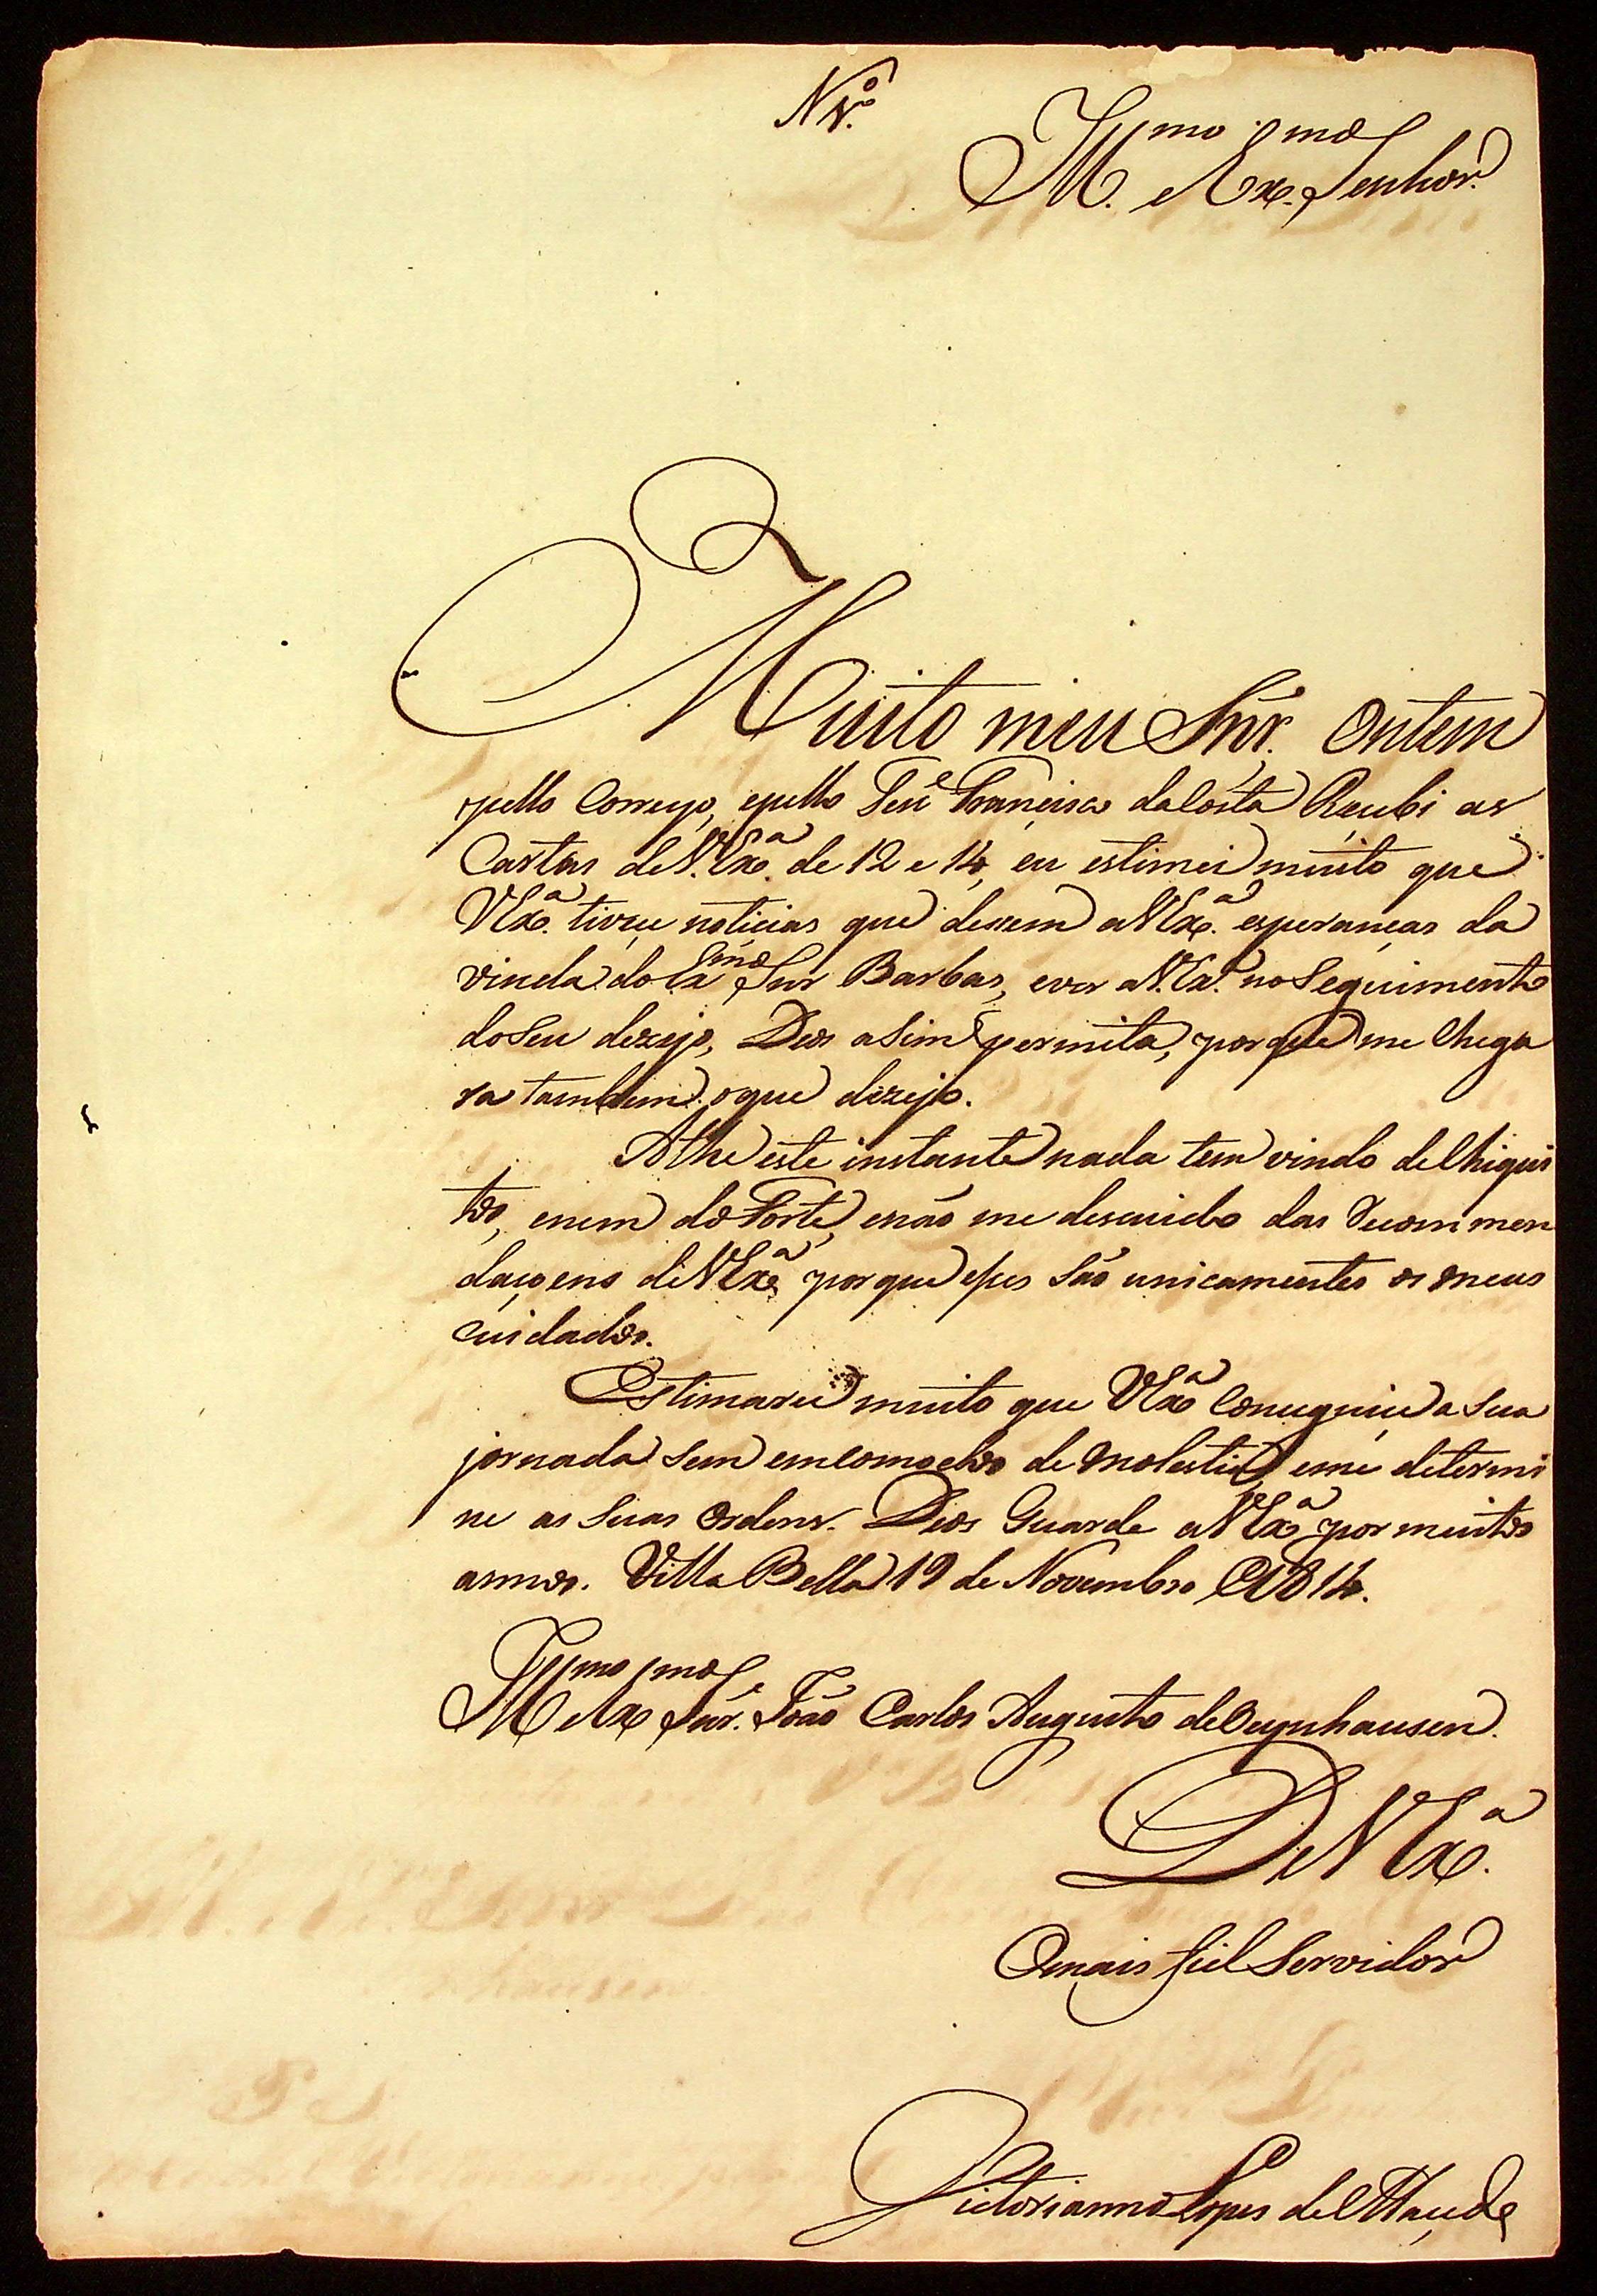 N.º
Ill.mo e Ex.mo Senhor.
Muito meu Snr. Ontem
pello Correyo, epello Ten.e Francisco daCosta Reçubi as
Cartas deV.Ex.a de 12 e 14, eu estimei muito que
VEx.a tivese noticias que desem aVEx.a esperanças da
vinda do Ex.mo Snr Barbas, ever aV.Ex.a noSeguimento
doSeu dezejo, Deos aSim permita, porque me Chega
ra tambem oque dizejo.
Athe este instante nada tem vindo deChiqui
tos, enem doForte, enão me descuido das Recommen
daçoens deVEx.a porque eses São unicamentes os meus
Cuidados.
Estimarei muito que VEx.a Consuguise a Sua
jornada Sem emComodos de molestia, eme determi
ne as Suas Ordens. Deos Guarde aVEx.a por muitos
annos. Villa Bella 19 de Novembro 1814.
Ill.mo e Ex.mo Snr. João Carlos Augusto deOeynhausen.
DeVEx.a
Omais fiel Servidor
Victorianno Lopes de